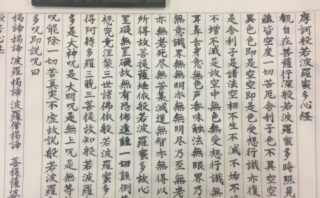 摩訶般若波羅蜜多心経
観自在菩薩行深般若波羅蜜多時照見
蘊皆空度一切苦厄舎利子色不異空空
異色色即是空空即是色受想行識亦復
是舎利子是諸法空相不生不滅不垢不
不増不減是故空中無色無受想行識無
耳鼻舌身意無色声香味触法無眼界乃
無意識界無無明亦無無明尽乃至無老
亦無老死尽無苦集滅道無智亦無得以
所得故菩提薩埵依般若波羅蜜多故心
罣礙無罣礙故無有恐怖遠離一切顛倒
想究竟涅槃三世諸仏依般若波羅蜜多
得阿耨多羅三藐三菩提故知般若波羅
多是大神呪是大明呪是無上呪是無等
呪能除一切苦真実不虚故説般若波羅
多呪即説呪曰
羯諦羯諦波羅羯諦波羅僧羯諦菩提薩